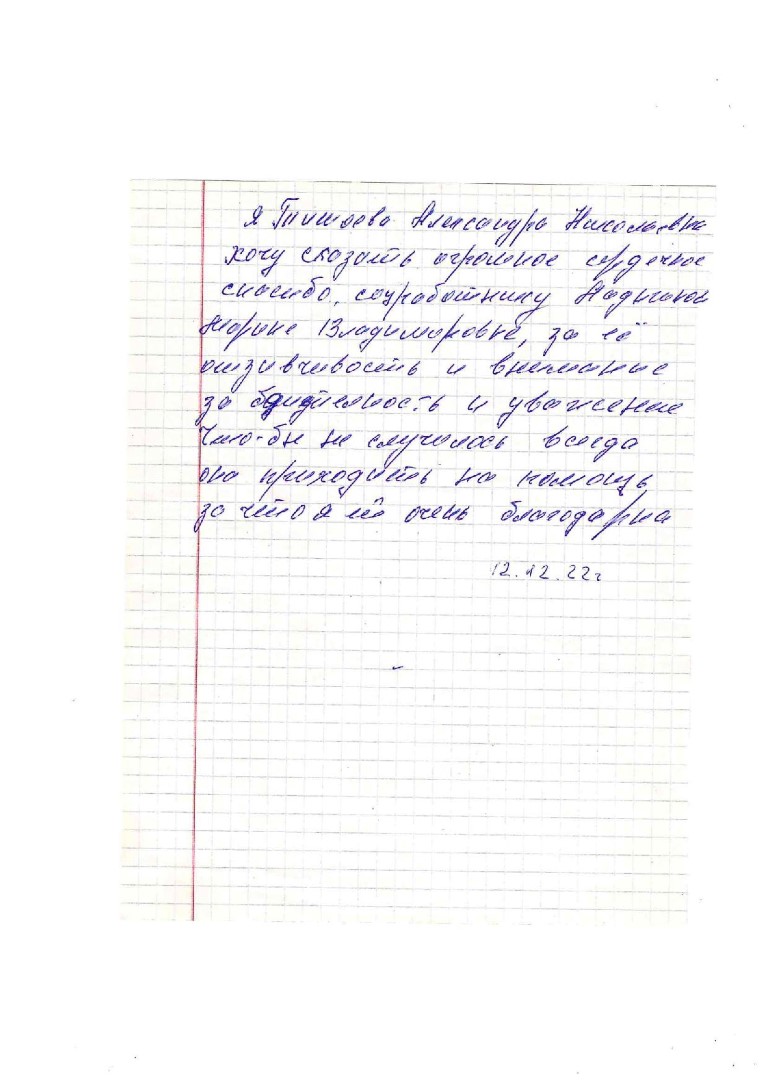 я Титова Александра Николаевна
хочу сказать огромное сердечное
спасибо, соцработнику
Марине Владимировне, за её
отзывчивость и внимание
за бдительность и уважение
Что-бы не случилось всегда
она приходить на помощь,
за что я ей очень благодарна
12.12.22г